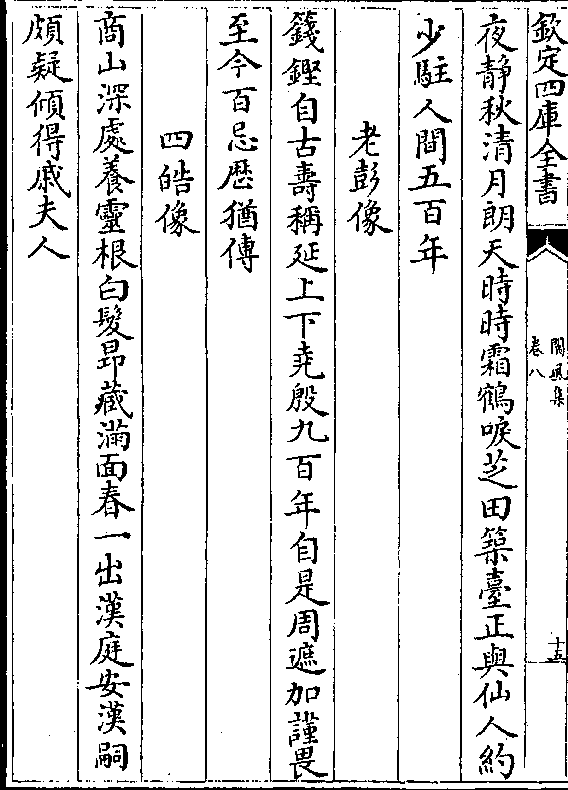 欽定四庫全書
閬風集
卷八
十五
夜靜秋清月朗天時時霜鶴唳芝田築臺正與仙人約
少駐人間五百年
老彭像
籛鏗自古壽稱延上下堯殷九百年自是周遮加謹畏
至今百忌歴猶傳
四皓像
商山深處養靈根白髮昂藏滿面春一出漢庭安漢嗣
頗疑傾得戚夫人